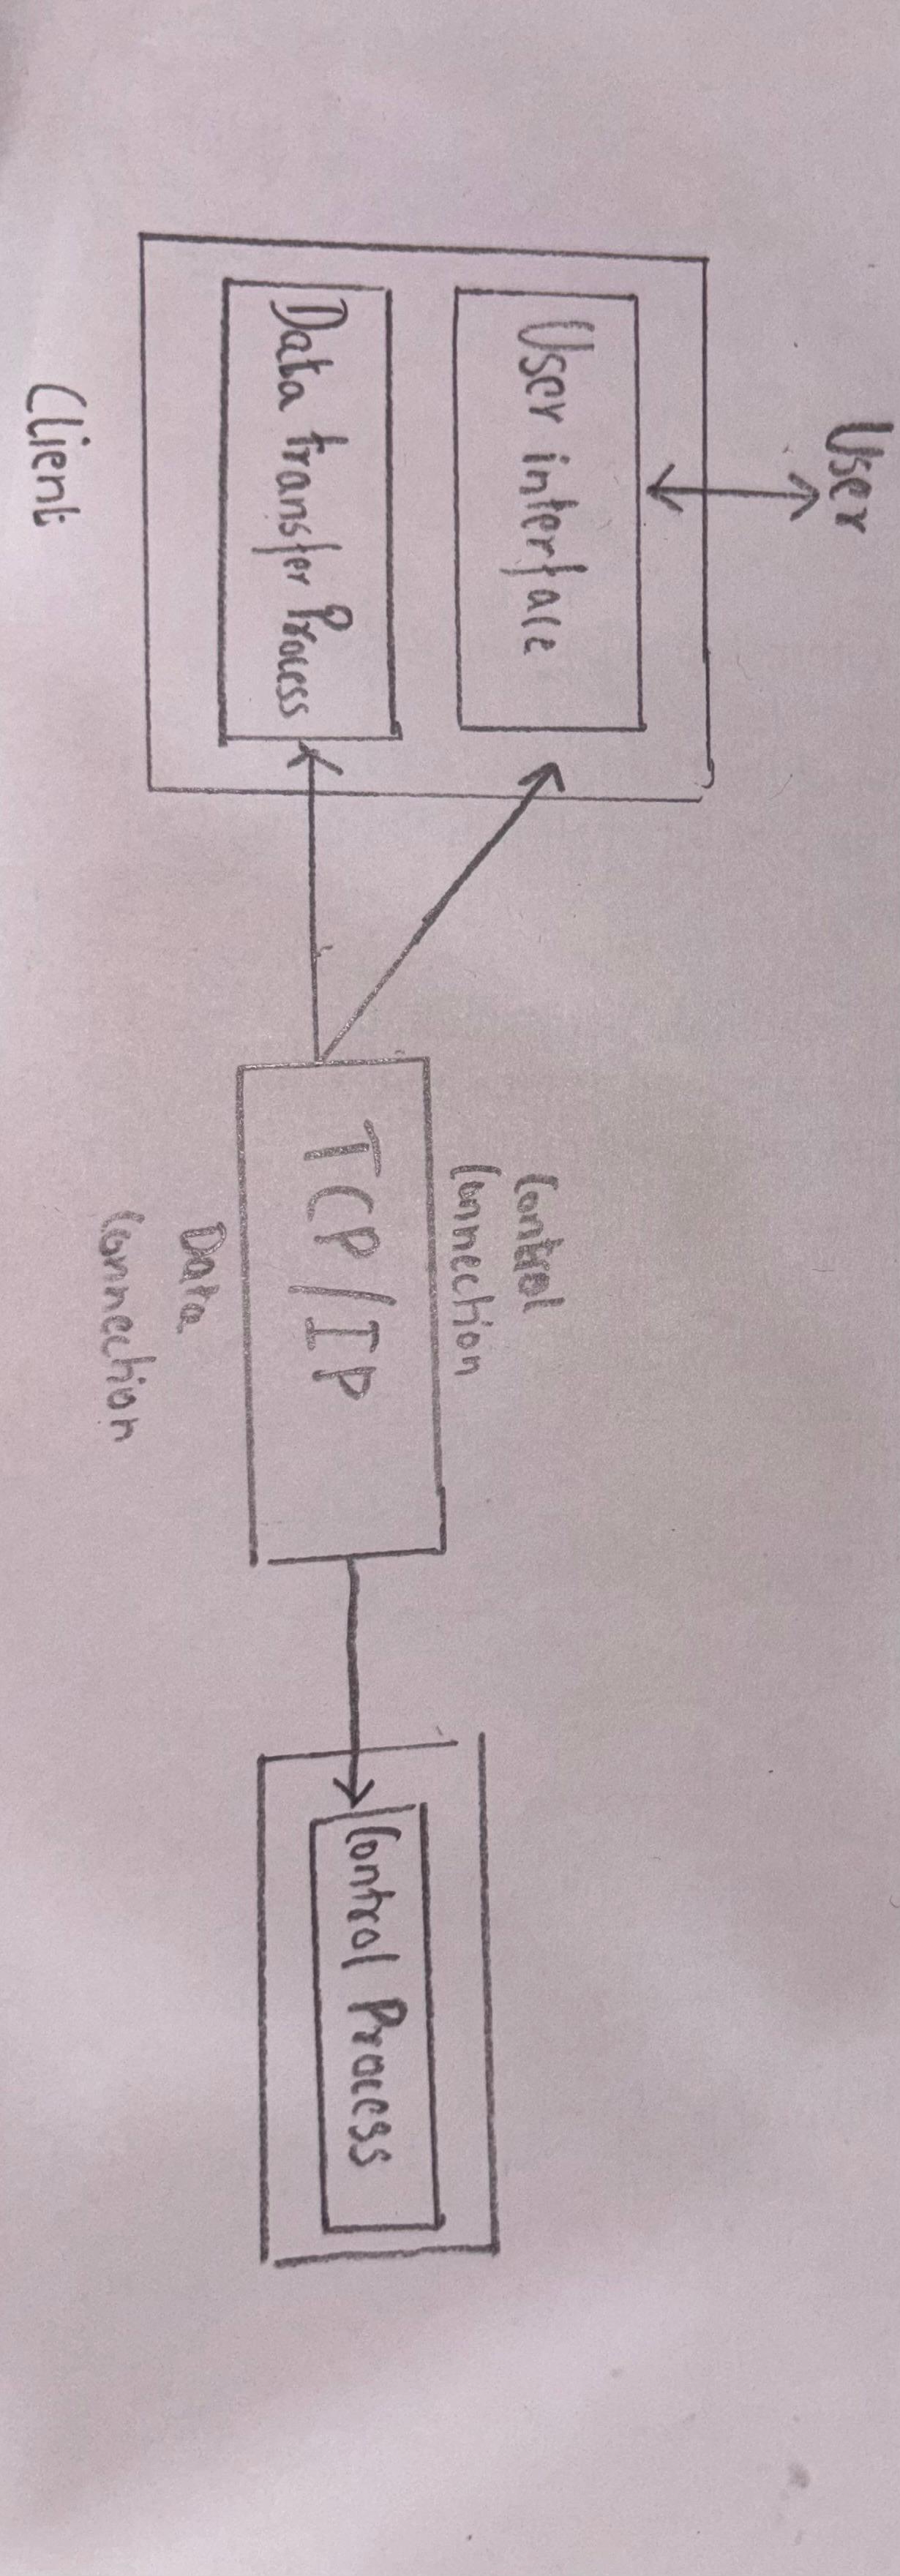 User
User interface
Data transfer Process
Client
Control
Connection
TCP/IP
Data
Connection
Control Process